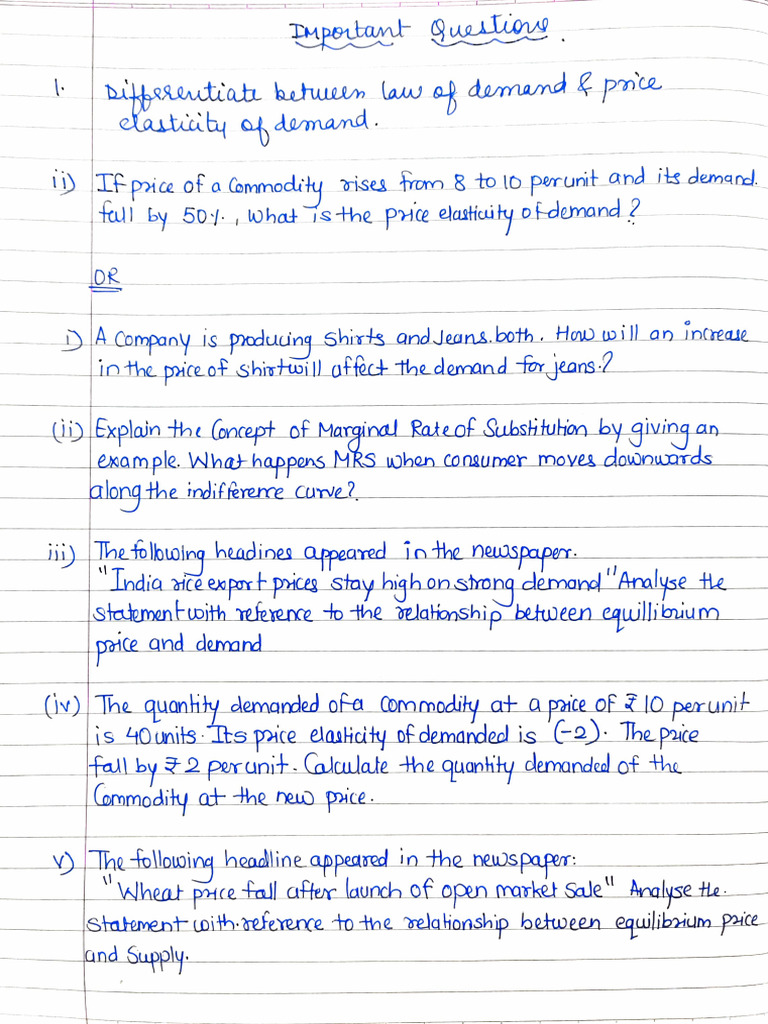 Important Questions.
1. Differentiate between law of demand & price
elasticity of demand.
ii) If price of a Commodity rises from 8 to 10 per unit and its demand.
fall by 50%., What is the price elasticity of demand?
OR
i) A Company is producing shirts and Jeans.both. How will an increase
in the price of shirt will affect the demand for jeans.?
(ii) Explain the Concept of Marginal Rate of Substitution by giving an
example. What happens MRS when consumer moves downwards
along the indifference curve?
iii) The following headines appeared in the newspaper.
"India rice export prices stay high on strong demand" Analyse the
statement with reference to the relationship between equillibrium
price and demand
(iv) The quantity demanded of a commodity at a price of ₹10 per unit
is 40 units. Its price elasticity of demanded is (-2). The price
fall by ₹2 per unit. Calculate the quantity demanded of the
Commodity at the new price.
v) The following headline appeared in the newspaper:
"Wheat price fall after launch of open market sale" Analyse the.
statement with.reference to the relationship between equilibrium price
and Supply.